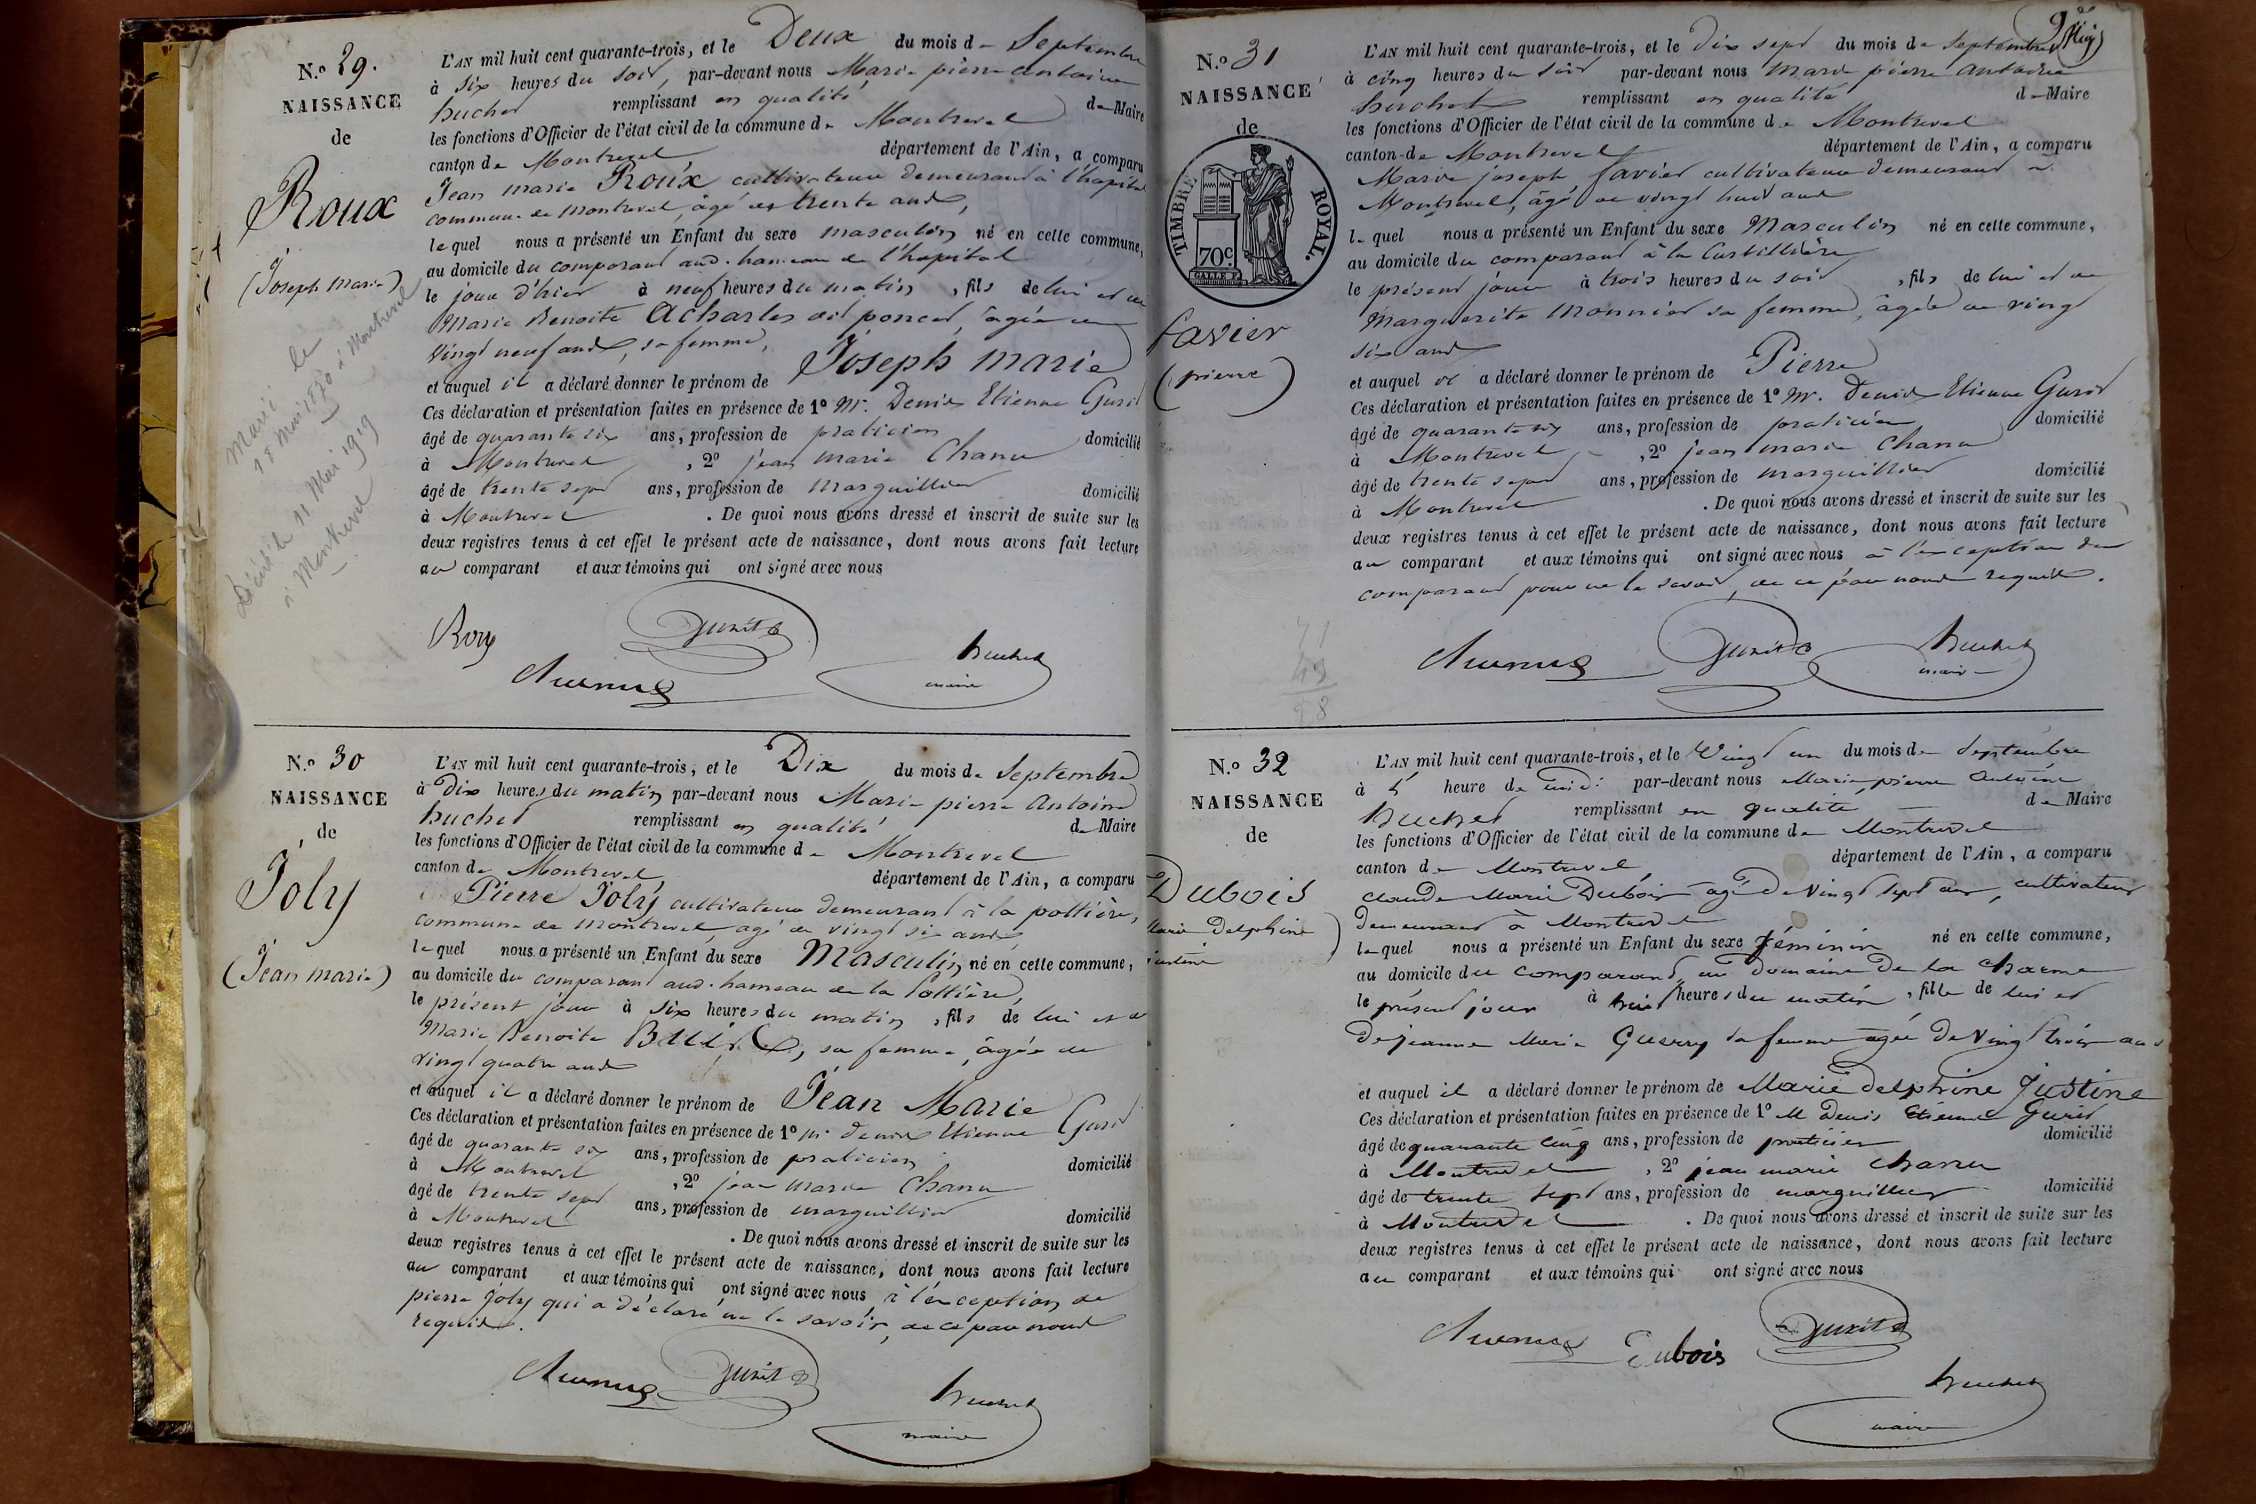 N.º 29.
NAISSANCE
de
Roux
(Joseph Marie)
Marié le
à Montrevel
Décédé le 11 Mai 1919
à Montrevel
L'AN mil huit cent quarante-trois, et le Deux du mois de Septembre
à Six heures du Soir, par-devant nous Marie pierre antoine
huchet remplissant en qualité de Maire
les fonctions d'Officier de l'état civil de la commune de Montrevel
canton de Montrevel département de l'Ain, a comparu
Jean marie Roux cultivateur demeurant à l'hopital
commune de montrevel, âgé de trente ans,
lequel nous a présenté un Enfant du sexe masculin né en cette commune,
au domicile du comparant aud. hameau de l'hopital
le jour d'hier à neuf heures du matin, fils de lui et de
Marie Benoite Acharles dit poncet, âgée de
vingt neuf ans, sa femme,
et auquel il a déclaré donner le prénom de Joseph Marie
Ces déclaration et présentation faites en présence de 1º Mr. Denis Etienne Gurit
âgé de quarante six ans, profession de praticien domicilié
à Montrevel, 2º jean marie Chanu
âgé de trente sept ans, profession de marguillier domicilié
à Montrevel. De quoi nous avons dressé et inscrit de suite sur les
deux registres tenus à cet effet le présent acte de naissance, dont nous avons fait lecture
au comparant et aux témoins qui ont signé avec nous
Roux
Gurit
huchet
maire
N.º 30
NAISSANCE
de
Joly
(Jean marie)
L'AN mil huit cent quarante-trois, et le Dix du mois de Septembre
à Dix heures du matin par-devant nous Marie pierre Antoine
huchet remplissant en qualité de Maire
les fonctions d'Officier de l'état civil de la commune de Montrevel
canton de Montrevel département de l'Ain, a comparu
Pierre Joly cultivateur demeurant à la pottière,
commune de montrevel, âgé de vingt six ans
lequel nous a présenté un Enfant du sexe Masculin né en cette commune,
au domicile du comparant aud. hameau de la Pottière,
le présent jour à six heures du matin, fils de lui et de
Marie Benoite, sa femme, âgée de
vingt quatre ans
et auquel il a déclaré donner le prénom de Jean Marie
Ces déclaration et présentation faites en présence de 1º Mr denis Etienne Gurit
âgé de quarante six ans, profession de praticien domicilié
à Montrevel, 2º jean marie Chanu
âgé de trente sept ans, profession de marguillier domicilié
à Montrevel. De quoi nous avons dressé et inscrit de suite sur les
deux registres tenus à cet effet le présent acte de naissance, dont nous avons fait lecture
au comparant et aux témoins qui ont signé avec nous à l'exception de
pierre Joly qui a déclaré ne le savoir, de ce par nous
requis.
Gurit
huchet
maire
N.º 31
NAISSANCE
de
TIMBRE ROYAL.
70c.
favier
(pierre)
L'AN mil huit cent quarante-trois, et le dix sept du mois de septembre
à cinq heures du soir par-devant nous marie pierre antoine
huchet remplissant en qualité de Maire
les fonctions d'Officier de l'état civil de la commune de Montrevel
canton de Montrevel département de l'Ain, a comparu
Marie joseph favier cultivateur demeurant à
Montrevel, âgé de vingt huit ans
lequel nous a présenté un Enfant du sexe Masculin né en cette commune,
au domicile du comparant à la
le présent jour à trois heures du soir, fils de lui et de
Marguerite Monnier sa femme, âgée de vingt
six ans
et auquel il a déclaré donner le prénom de Pierre
Ces déclaration et présentation faites en présence de 1º Mr. Denis Etienne Gurit
âgé de quarante six ans, profession de praticien domicilié
à Montrevel, 2º jean marie Chanu
âgé de trente sept ans, profession de marguillier domicilié
à Montrevel. De quoi nous avons dressé et inscrit de suite sur les
deux registres tenus à cet effet le présent acte de naissance, dont nous avons fait lecture
au comparant et aux témoins qui ont signé avec nous à l'exception du
comparant pour ne le savoir, de ce par nous requis.
Gurit
huchet
maire
N.º 32
NAISSANCE
de
Dubois
Marie Delphine
justine
L'AN mil huit cent quarante-trois, et le Vingt un du mois de Septembre
à heure de par-devant nous Marie pierre Antoine
huchet remplissant en qualité de Maire
les fonctions d'Officier de l'état civil de la commune de Montrevel
canton de Montrevel département de l'Ain, a comparu
Claude Marie Dubois âgé de Vingt sept ans, cultivateur
demeurant à Montrevel
lequel nous a présenté un Enfant du sexe féminin né en cette commune,
au domicile du comparant, au Domaine de la Charme
le présent jour à huit heures du matin, fille de lui et
de jeanne Marie Guerry sa femme agée de Vingt trois ans
et auquel il a déclaré donner le prénom de Marie Delphine Justine
Ces déclaration et présentation faites en présence de 1º M Denis Etienne Gurit
âgé de quarante cinq ans, profession de praticien domicilié
à Montrevel, 2º jean marie Chanu
âgé de trente sept ans, profession de marguillier domicilié
à Montrevel. De quoi nous avons dressé et inscrit de suite sur les
deux registres tenus à cet effet le présent acte de naissance, dont nous avons fait lecture
au comparant et aux témoins qui ont signé avec nous
Dubois
Gurit
huchet
maire